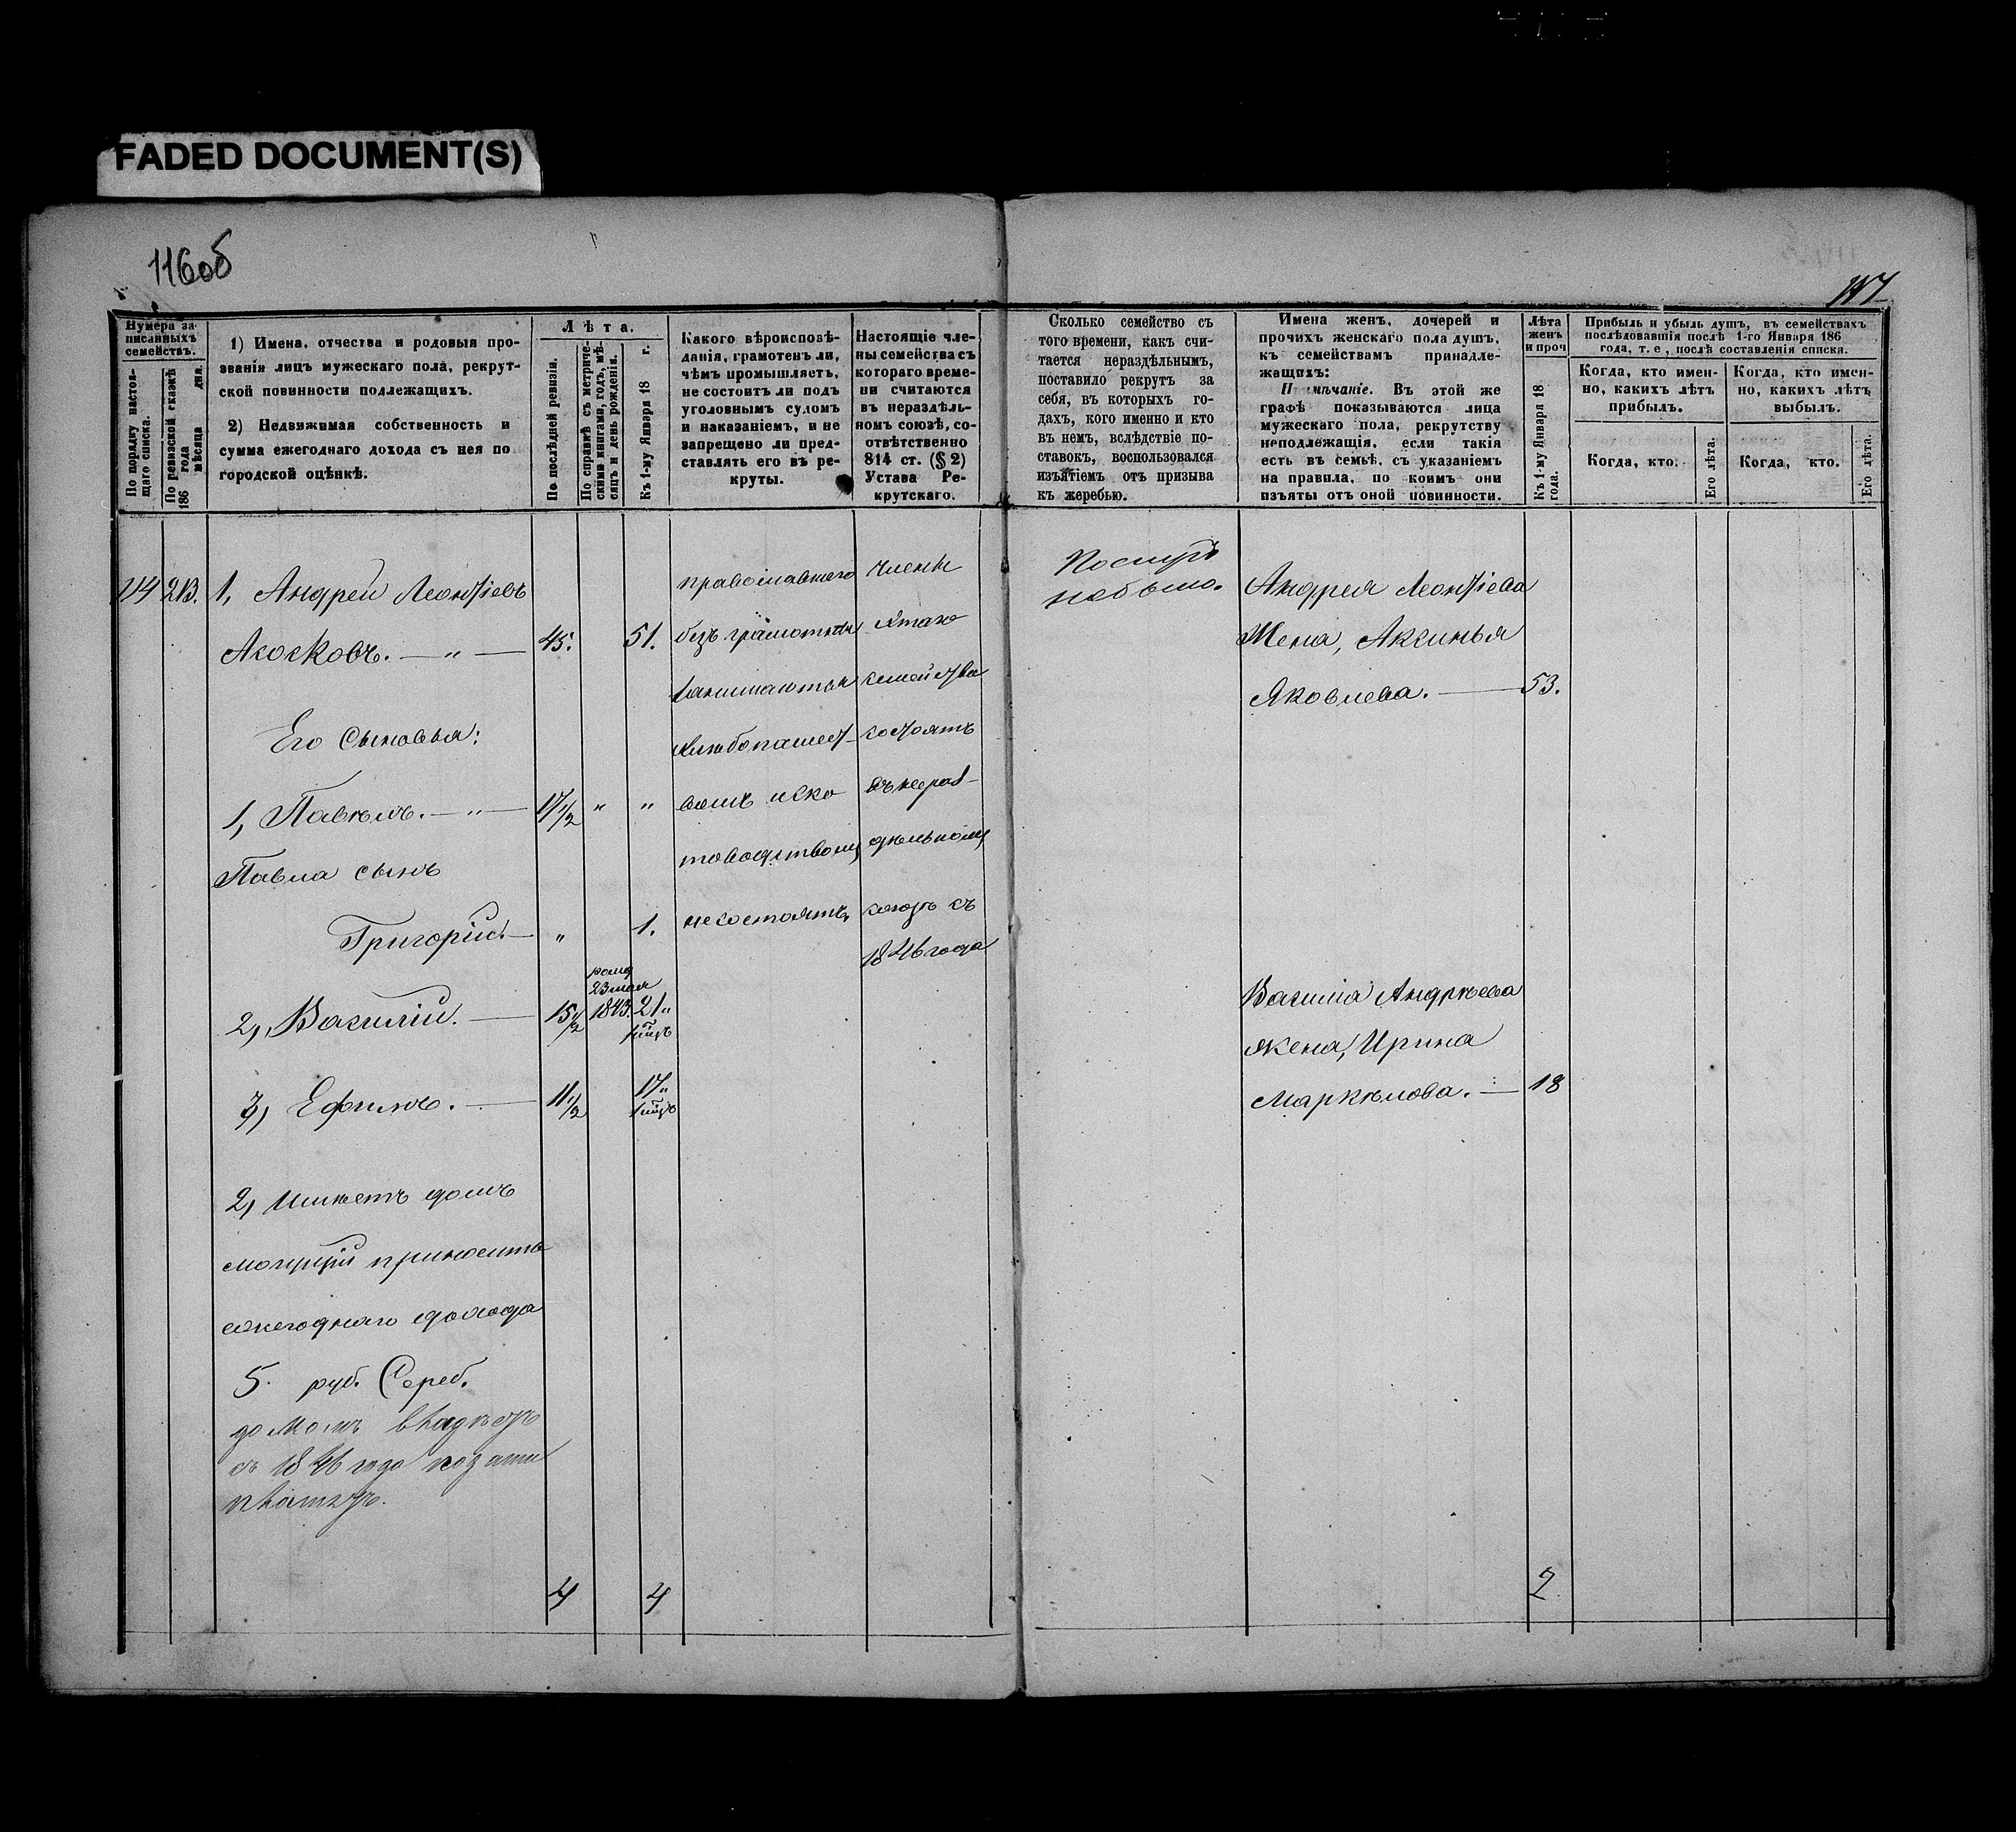 FADED DOCUMENT(S)
116об
117
Нумера за-
писанныхъ
семействъ.
По порядку настоя-
щаго списка.
По ревизской сказкѣ
186 года
мѣсяца дня.
1) Имена, отчества и родовыя про-
званія лицъ мужескаго пола, рекрут-
ской повинности подлежащихъ.
2) Недвижимая собственность и
сумма ежегоднаго дохода съ нея по
городской оцѣнкѣ.
Лѣта.
По послѣдней ревизіи.
По справкѣ съ метриче-
скими книгами, годъ, мѣ-
сяцъ и день рожденія.
Къ 1-му Января 18 г.
Какого вѣроисповѣ-
данія, грамотенъ ли,
чѣмъ промышляетъ,
не состоитъ ли подъ
уголовнымъ судомъ
и наказаніемъ, и не
запрещено ли пред-
ставлять его въ ре-
круты.
Настоящіе чле-
ны семейства съ
котораго време-
ни считаются
въ нераздѣль-
номъ союзѣ, со-
отвѣтственно
814 ст. (§ 2)
Устава Ре-
крутскаго.
Сколько семейство съ
того времени, какъ счи-
тается нераздѣльнымъ,
поставило рекрутъ за
себя, въ которыхъ го-
дахъ, кого именно и кто
въ немъ, вслѣдствіе по-
ставокъ, воспользовался
изъятіемъ отъ призыва
къ жеребью.
Имена женъ, дочерей и
прочихъ женскаго пола душъ,
къ семействамъ принадле-
жащихъ:
Примѣчаніе. Въ этой же
графѣ показываются лица
мужескаго пола, рекрутству
неподлежащія, если такія
есть въ семьѣ, съ указаніемъ
на правила, по коимъ они
изъяты отъ оной повинности.
Лѣта
женъ
и проч
Къ 1-му Января 18
года.
Прибыль и убыль душъ, въ семействахъ
послѣдовавшія послѣ 1-го Января 186
года, т. е., послѣ составленія списка.
Когда, кто имен-
но, какихъ лѣтъ
прибылъ.
Когда, кто имен-
но, какихъ лѣтъ
выбылъ.
Когда, кто.
Его лѣта.
Когда, кто.
Его лѣта.
114 213. 1, Андрей Леонтіевъ
45. 51.
Его Сыновья:
1, Павелъ. — " — 17 1/2 " "
Павла сынъ
Григорій. — " 1.
рожд
23 мая
2, Василій. — 15 1/2 1843. 21"
3, Ефимъ. — 11 1/2 17"
2, Имѣетъ домъ
могущій приносить
ежегоднаго дохода
5. руб. Сереб.
домомъ владѣетъ
съ 1846 года подати
платитъ.
4 4
православнаго
безъ грамотны
занимаются
хлѣбопашест-
вомъ и ско
товодствомъ
не состоятъ
члены
этаго
семейства
состоятъ
въ нераз-
дѣльномъ
союзѣ съ
1846 года
небыло.
Андрея Леонтіева
Жена, Аксинья
Яковлева. — 53.
Василія Андрѣева
жена, Ирина
Маркѣлова. — 18
2